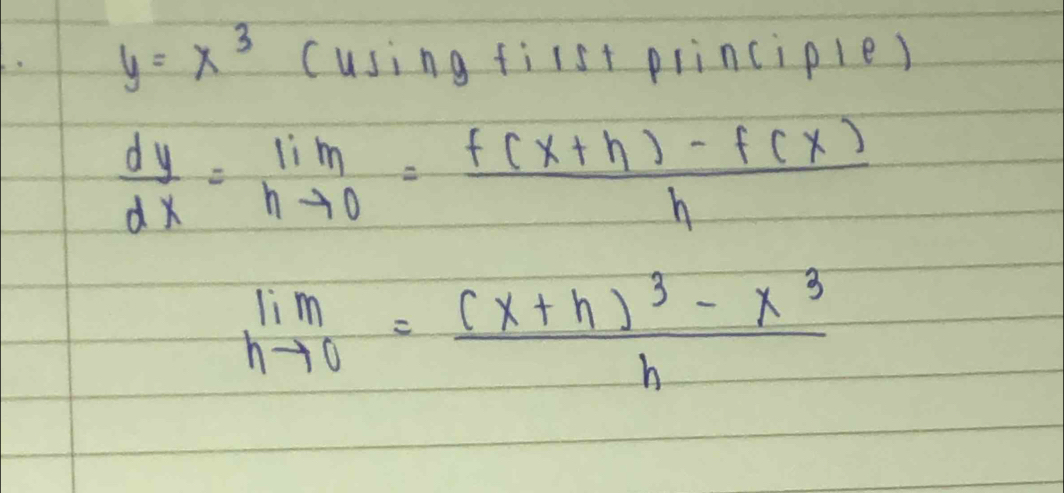 y = x³ (using first principle)
dy/dx = lim h→0 = f(x+h) - f(x) / h
lim h→0 = (x+h)³ - x³ / h